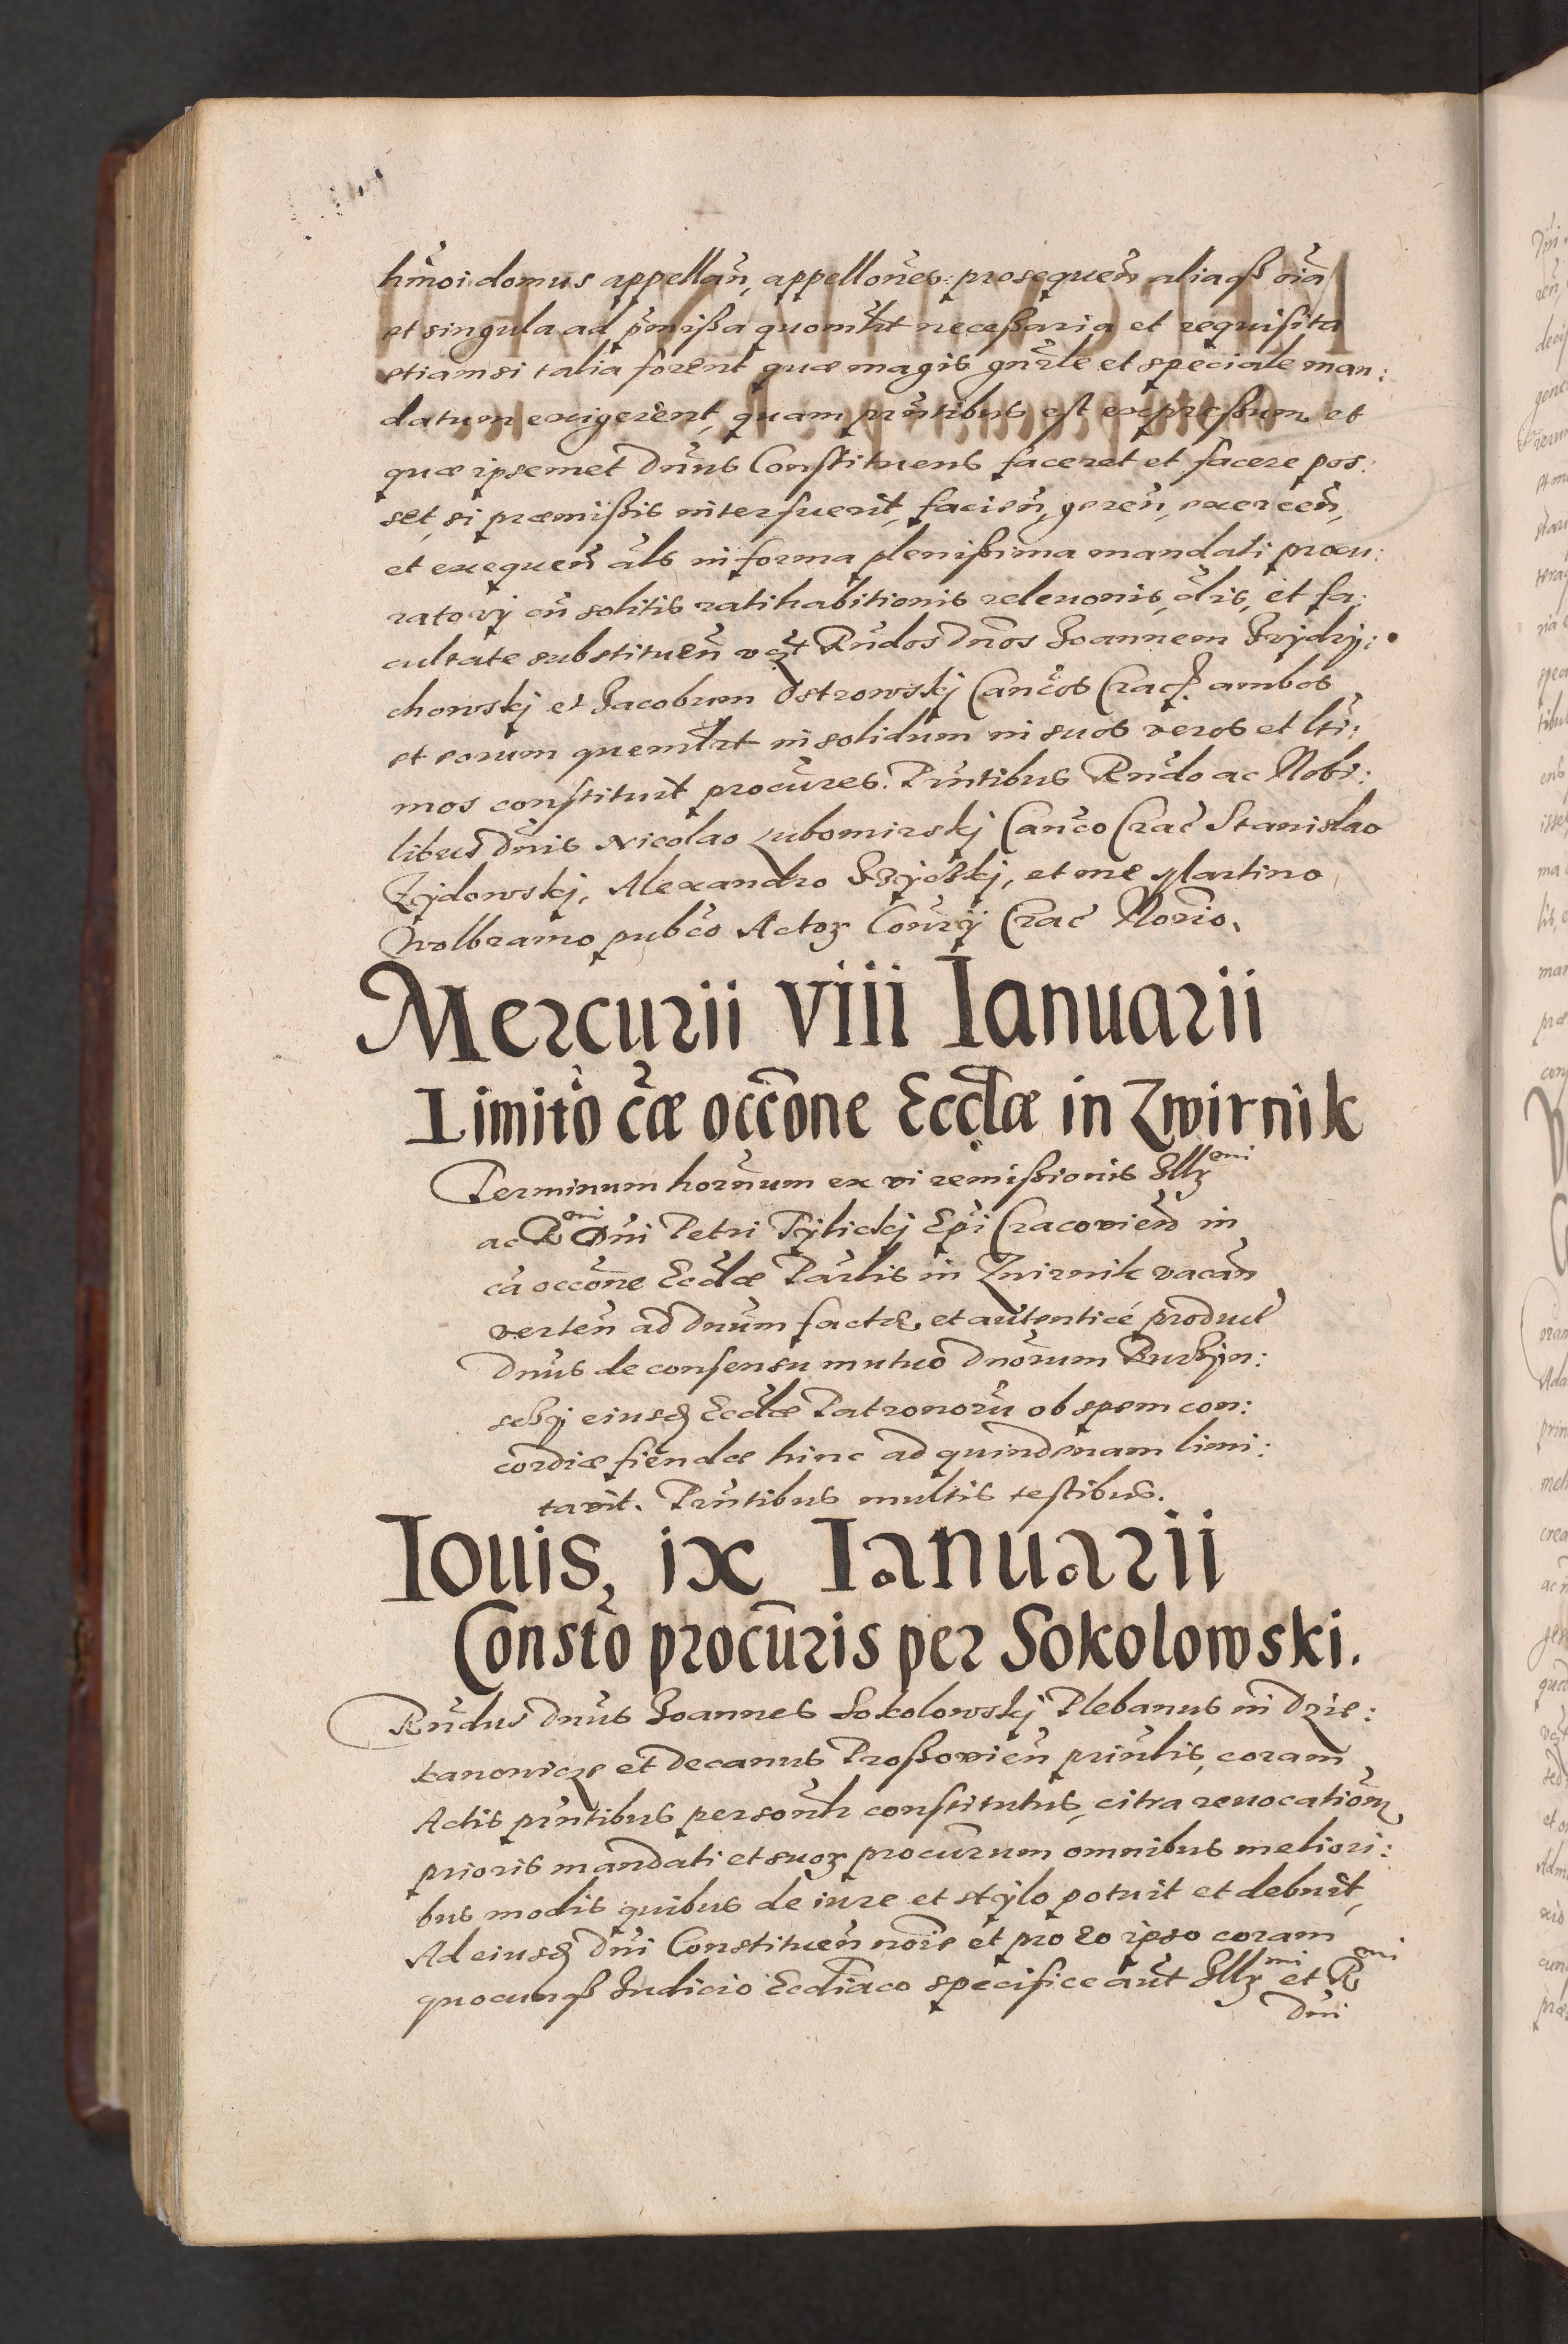 hm̃oi domus appellañ, appellões prosequeñ aliaqß oĩa
et singula ad p̃mißa quomõlt neceßaria et requisita
etiamsi talia forent quæ magis gñrle et speciale man:
datum exigerent, quam pñtibus est expreßum et
quæ ipsemet Dñus Constituens faceret et facere pos:
set, si præmißis interfuerit, facieñ, gereñ, exerceñ,
et exequeñ als in forma plenißima mandati procu:
ratorij cũ solitis ratihabitionis releuonis, õis, et fa:
cultate substitueñ vczt Rñdos Dños Joannem
chowskj et Jacobum Ostrowskj Cañcos Cracß ambos
et eorum quemlt in solidum in suos veros et lti:
mos constituit procũres. Pñtibus Rñdo ac Nobi:
libus Dñis Nicolao Lubomirskj Cañco Crac̃ Stanislao
Zÿdowskj, Alexandro et me Martino
Wolbramo pubc̃o Actoꝝ Coñrij Crac̃ Notrio.
Mercurii viii Ianuarii
Limitõ cãe occõne Eccl̃æ in Zwirnik
Terminum horñum ex vi remißionis Illꝫ^mi
ac R^mi Dñi Petri Tÿlickj Epĩ Cracovieñ in
cã occõne Eccl̃æ Pãrlis in Zwirnik vacañ
verteñ ad Dnũm factæ, et autenticé product̃
Dñus de consensu mutuo Dnõrum
eiusꝗ Eccl̃æ Patronorũ ob spem con:
cordiæ fiendæ hinc ad quindenam limi:
tavit. Pñtibus multis testibus.
Iouis, ix Ianuarii
Constõ procũris per Sokolowski.
Rñdus Dñus Joannes Sokolowskj Plebanus in Dzie:
kanowicze et Decanus Proßovieñ priñlis, coram
Actis pñtibus persoñlr constitutus, citra reuocationẽ
prioris mandati et suoꝝ procũrum omnibus meliori:
bus modis quibus de iure et stÿlo potuit et debuit,
Ad eiusꝗ Dñi Constitueñ noĩe et pro eo ipso coram
quocunqß Judicio Eccl̃iaco specifice aũt Illꝫ^mi et R^mi
Dñi